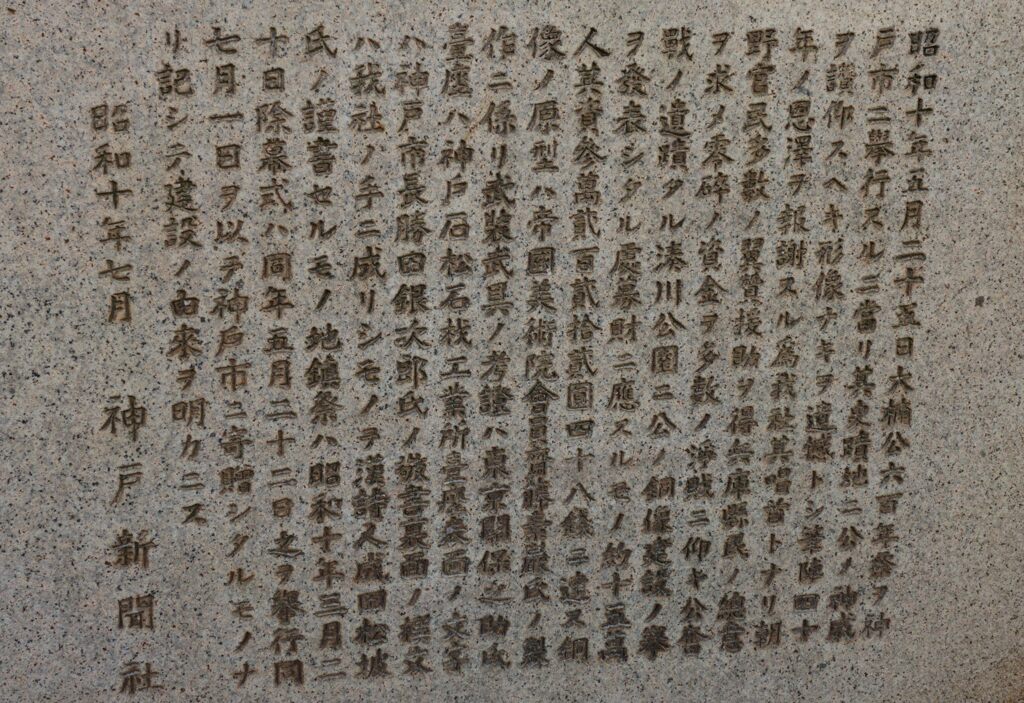 昭和十年五月二十五日大楠公六百年祭ヲ神
戸市ニ擧行スルニ當リ其史蹟地ニ公ノ神威
ヲ謹仰スヘキ形像ナキヲ遺憾トシ薨後四十
年ノ恩澤ヲ報謝スル爲我社其唱首トナリ朝
野官民多數ノ翼賛援助ヲ得兵庫縣民ノ總意
ヲ求メ零碎ノ資金ヲ多數ノ淨財ニ仰キ公會
戰ノ遺蹟タル湊川公園ニ公ノ銅像建設ノ擧
ヲ發表シタル處募財ニ應スルモノ約十五萬
人其資參萬貳百貳拾貳圓四十八錢ニ達ス銅
像ノ原型ハ帝國美術院會員齋藤素巖氏ノ製
作ニ係リ武裝武具ノ考證ハ東京關保之助氏
臺座ハ神戸石松石材工業所臺座表面ノ文字
ハ神戸市長勝田銀次郎氏ノ揮毫裏面ノ経文
ハ我社ノ手ニ成リシモノテ漢詩人盛田松坡
氏ノ謹書セルモノ地鎮祭ハ昭和十年三月二
十日除幕式ハ同年五月二十二日之ヲ擧行同
七月一日ヲ以テ神戸市ニ寄贈シタルモノナ
リ記シテ建設ノ由来ヲ明カニス
昭和十年七月 神戸新聞社